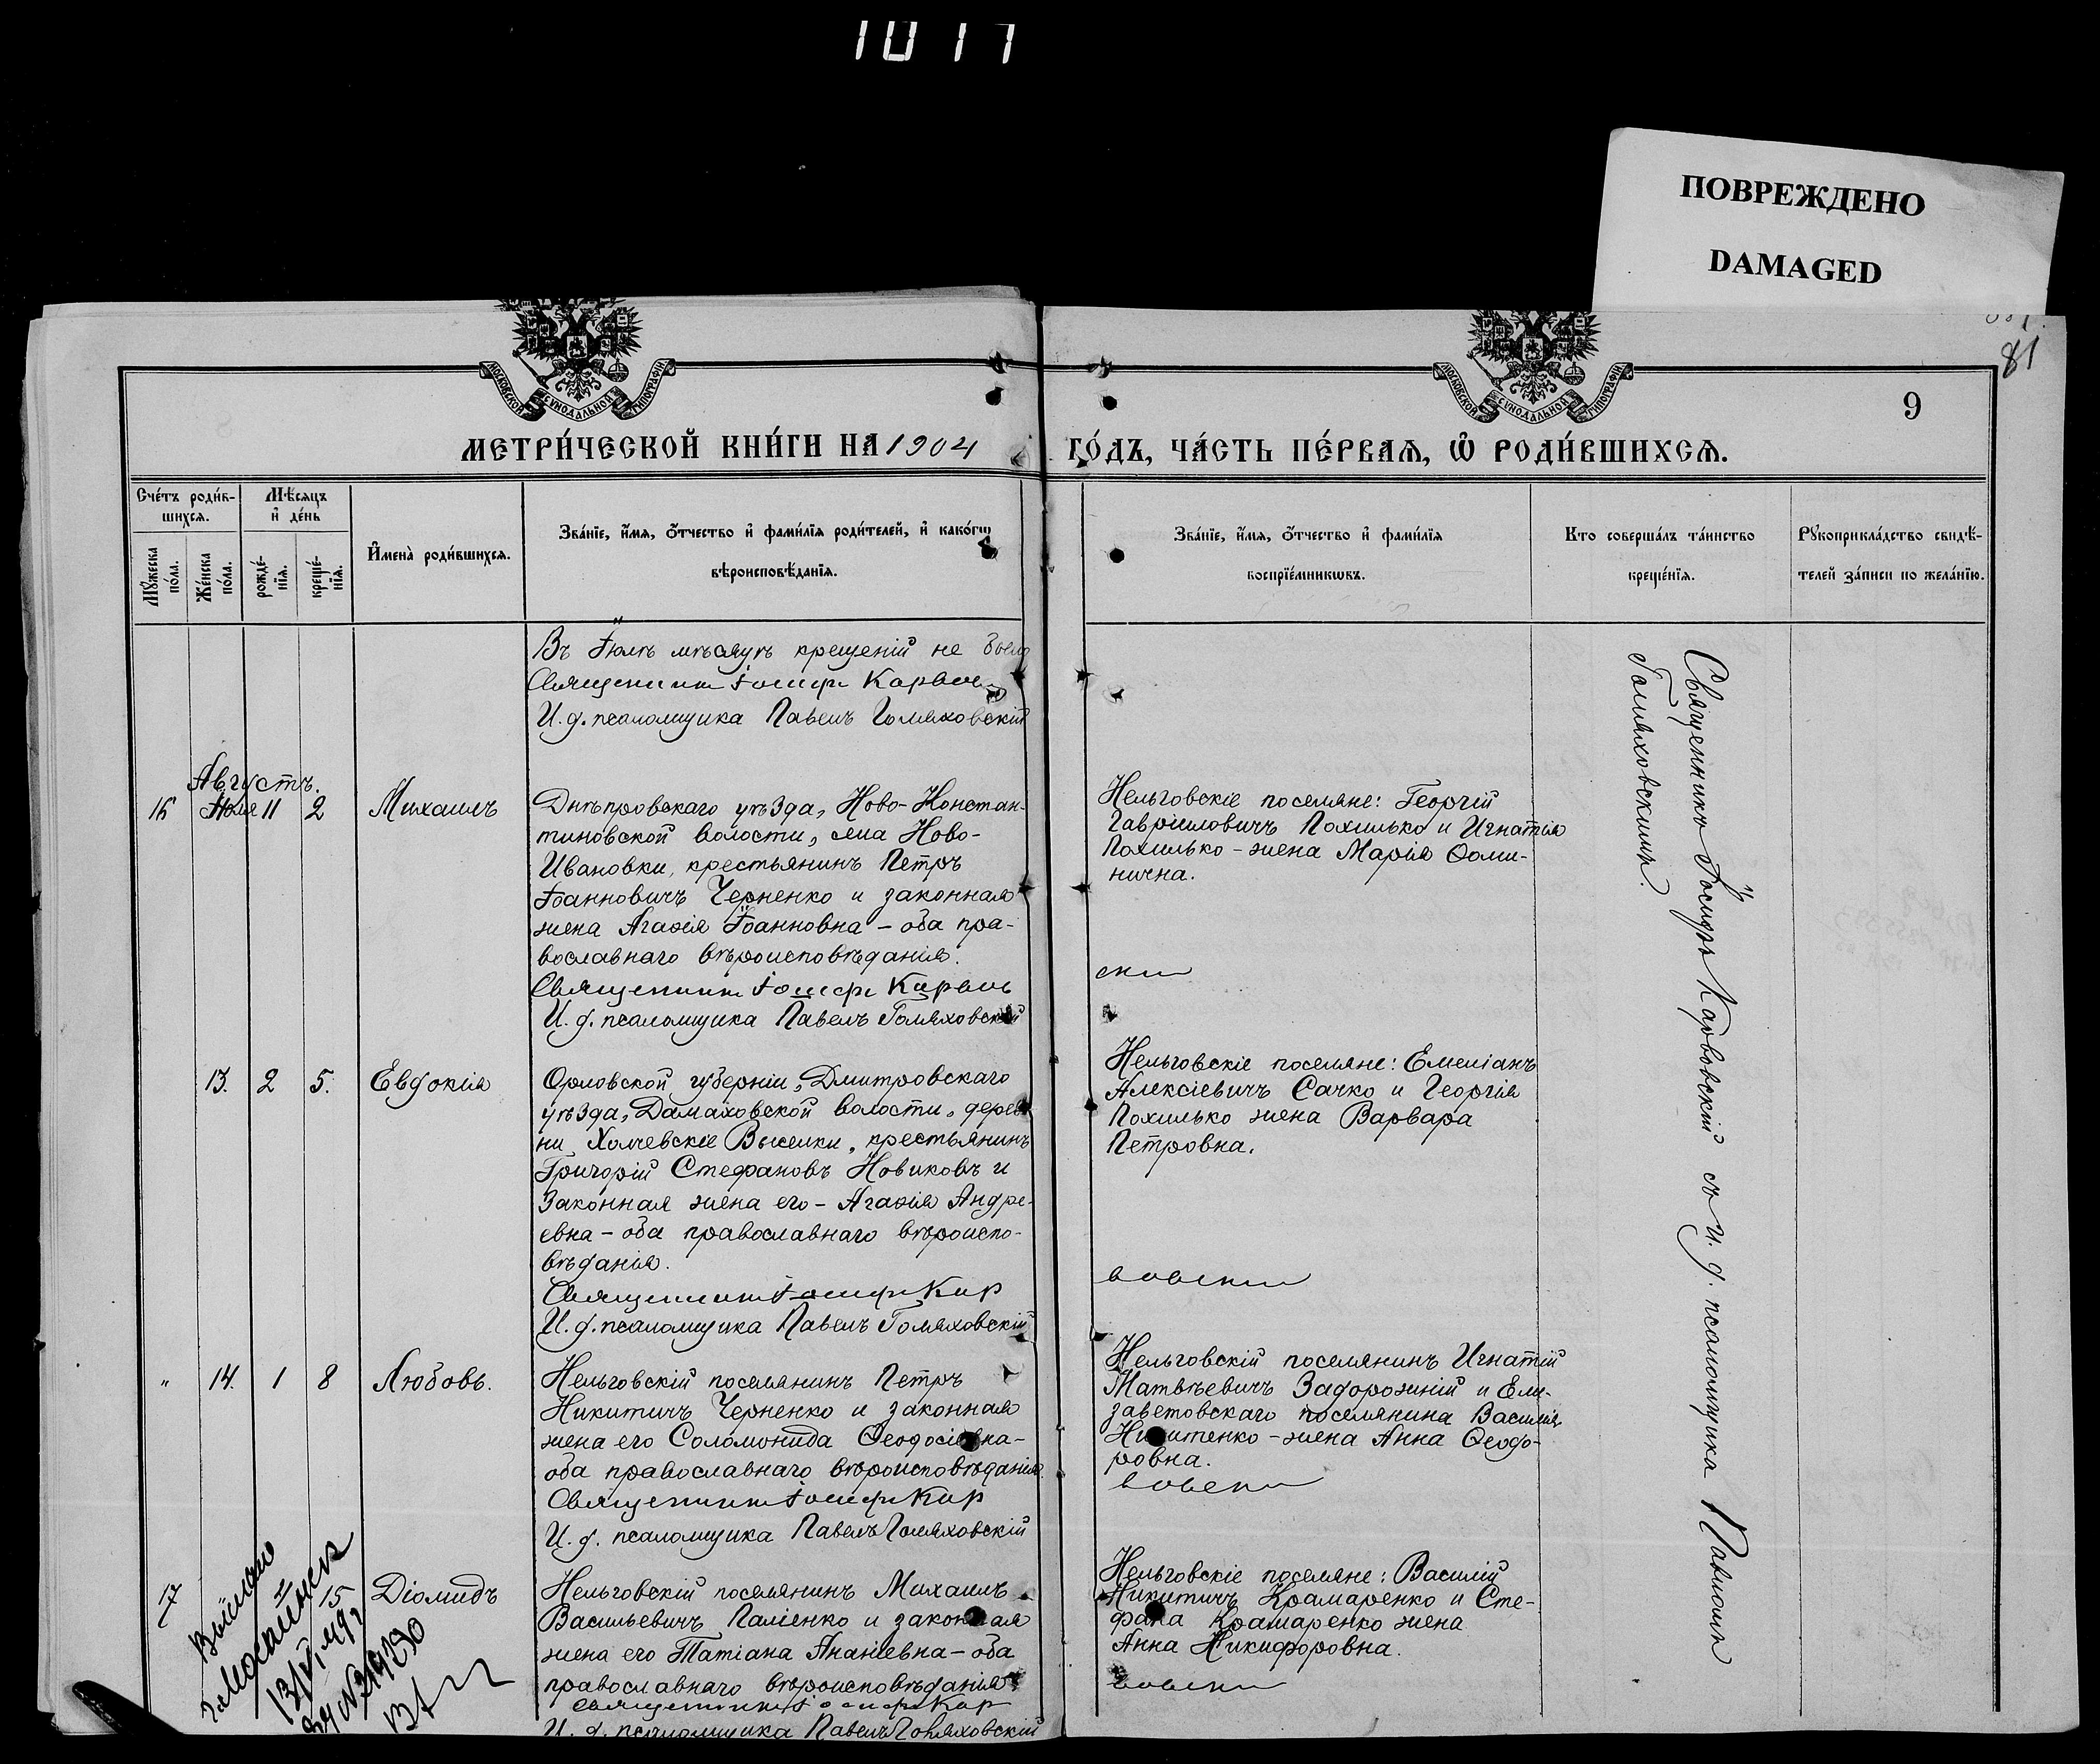 1017
ПОВРЕЖДЕНО
DAMAGED
81
МОСКОВСКОЙ СѴНОДАЛЬНОЙ ТИПОГРАФІИ
МОСКОВСКОЙ СѴНОДАЛЬНОЙ ТИПОГРАФІИ
9
МЕТРИ́ЧЕСКОЙ КНИ́ГИ НА 1904 ГО́ДЪ, ЧА́СТЬ ПЕ́РВАЯ, Ѡ҆ РОДИ́ВШИХСЯ.
Сче́тъ роди́в-
шихся.
Мѣ́сяцъ
и҆ де́нь
Мꙋ́жеска
по́ла.
Же́нска
по́ла.
рожде́-
нїя.
креще́-
нїя.
И҆мена̀ роди́вшихся.
Зва́нїе, и҆́мя, ѻ҆́тчество и҆ фами́лїя роди́телей, и҆ како́гѡ
вѣроисповѣ́данїя.
Зва́нїе, и҆́мя, ѻ҆́тчество и҆ фами́лїя
воспрїе́мникѡвъ.
Кто соверша́лъ та́инство
креще́нїя.
Рꙋкоприкла́дство свидѣ́-
телей за́писи по жела́нїю.
Въ Іюлѣ мѣсяцѣ крещеній не было
Священникъ Іосифъ Карвовскій
И. д. псаломщика Павелъ Голяховскій
Августъ.
16 Июля 11 2 Михаилъ
Днѣпровскаго уѣзда, Ново-Констан-
тиновской волости, села Ново-
Ивановки, крестьянинъ Петръ
Іоанновичъ Черненко и законная
жена Агаѳія Іоанновна - оба пра-
вославнаго вѣроисповѣданія.
Священникъ Іосифъ Карвов
И. д. псаломщика Павелъ Голяховскій
Нельговскіе поселяне: Георгій
Гавріиловичъ Похилько и Игнатія
Похилько - жена Марія Ѳоми-
нична.
скій
13. 2 5. Евдокія
Орловской губерніи, Дмитровскаго
уѣзда, Домаховской волости, дерев
ни Холчевскіе Выселки, крестьянинъ
Григорій Стефановъ Новиковъ и
Законная жена его - Агаѳія Андре-
евна - оба православнаго вѣроиспо-
вѣданія.
Священникъ Іосифъ Кар
И. д. псаломщика Павелъ Голяховскій
Нельговскіе поселяне: Емеліанъ
Алексіевичъ Сачко и Георгія
Похилько жена Варвара
Петровна.
вовскій
" 14. 1 8 Любовь.
Нельговскій поселянинъ Петръ
Никитичъ Черненко и законная
жена его Соломонида Ѳеодосіевна -
оба православнаго вѣроисповѣданія
Священникъ Іосифъ Кар
И. д. псаломщика Павелъ Голяховскій
Нельговскій поселянинъ Игнатій
Матвѣевичъ Задорожній и Ели-
заветовскаго поселянина Василія
Никитенко - жена Анна Ѳеодо-
ровна.
вовскій
17 15 Діомидъ
Нельговскій поселянинъ Михаилъ
Васильевичъ Паліенко и законная
жена его Татіана Ананіевна - оба
православнаго вѣроисповѣданія.
Священникъ Іосифъ Кар
И. д. псаломщика Павелъ Голяховскій
Нельговскіе поселяне: Василій
Никитичъ Крамаренко и Сте-
фана Крамаренко жена
Анна Никифоровна.
вовскій
Священникъ Іосифъ Карвовскій съ И. д. псаломщика Павломъ
Голяховскимъ.